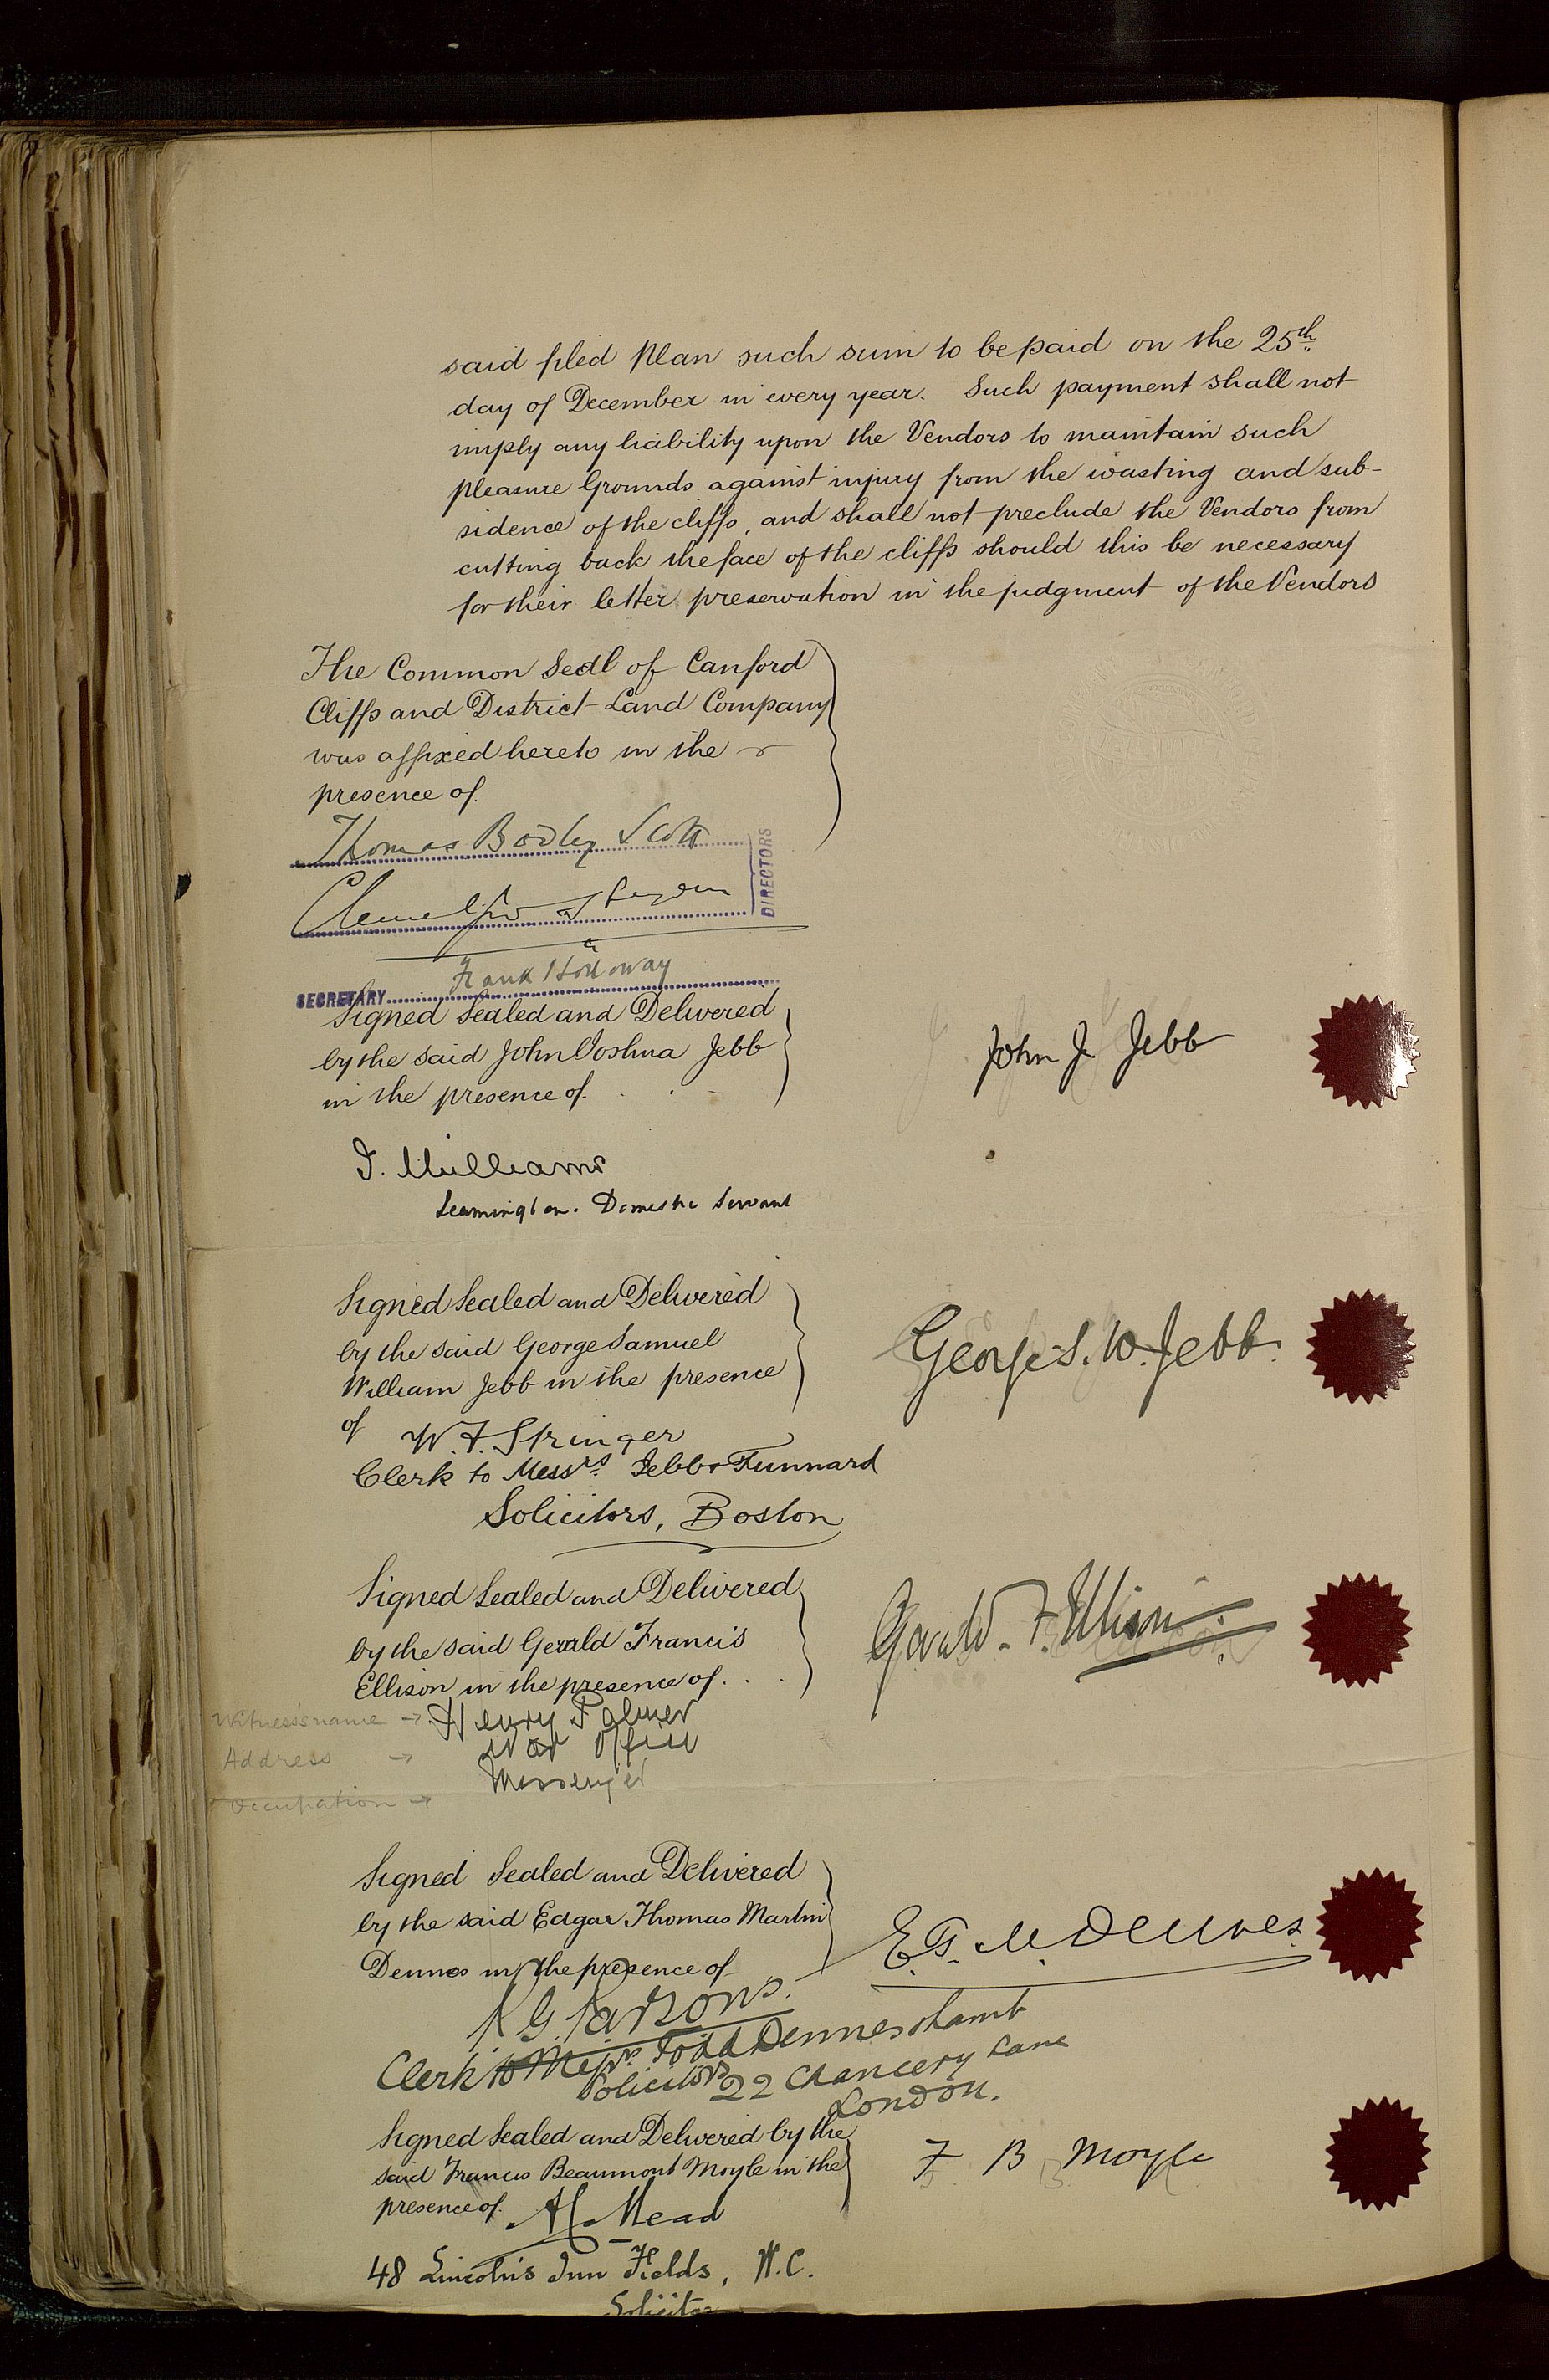 said filed Plan such sum to be paid on the 25th
day of December in every year. Such payment shall not
imply any liability upon the Vendors to maintain such
pleasure Grounds against injury from the wasting and sub-
sidence of the cliffs, and shall not preclude the Vendors from
cutting back the face of the cliffs should this be necessary
for their better preservation in the judgment of the Vendors
The Common Seal of Canford
Cliffs and District Land Company
was affixed hereto in the
presence of.
Thomas Bodley Scott
DIRECTORS
Frank Holloway
SECRETARY
Signed Sealed and Delivered
by the said John Joshua Jebb
in the presence of.
John J. Jebb
Williams
Leamington. Domestic Servant
Signed Sealed and Delivered
by the said George Samuel
William Jebb in the presence
of W. F. Springer
George S. W. Jebb.
Clerk to Messrs. Jebb & Tunnard
Solicitors, Boston
Signed Sealed and Delivered
by the said Gerald Francis
Ellison in the presence of. . .
Gerald. F. Ellison
Witness's name → Henry Palmer
Address → War Office
Messenger
Occupation →
Signed Sealed and Delivered
by the said Edgar Thomas Martin
Dennes in the presence of
E. T. M Dennes.
Parsons.
Clerk to Messrs. Todd Dennes & Lamb
Solicitors 22 Chancery Lane
London.
Signed Sealed and Delivered by the
said Francis Beaumont Moyle in the
presence of. Mead
F B Moyle
48 Lincoln's Inn Fields, W.C.
Solicitor